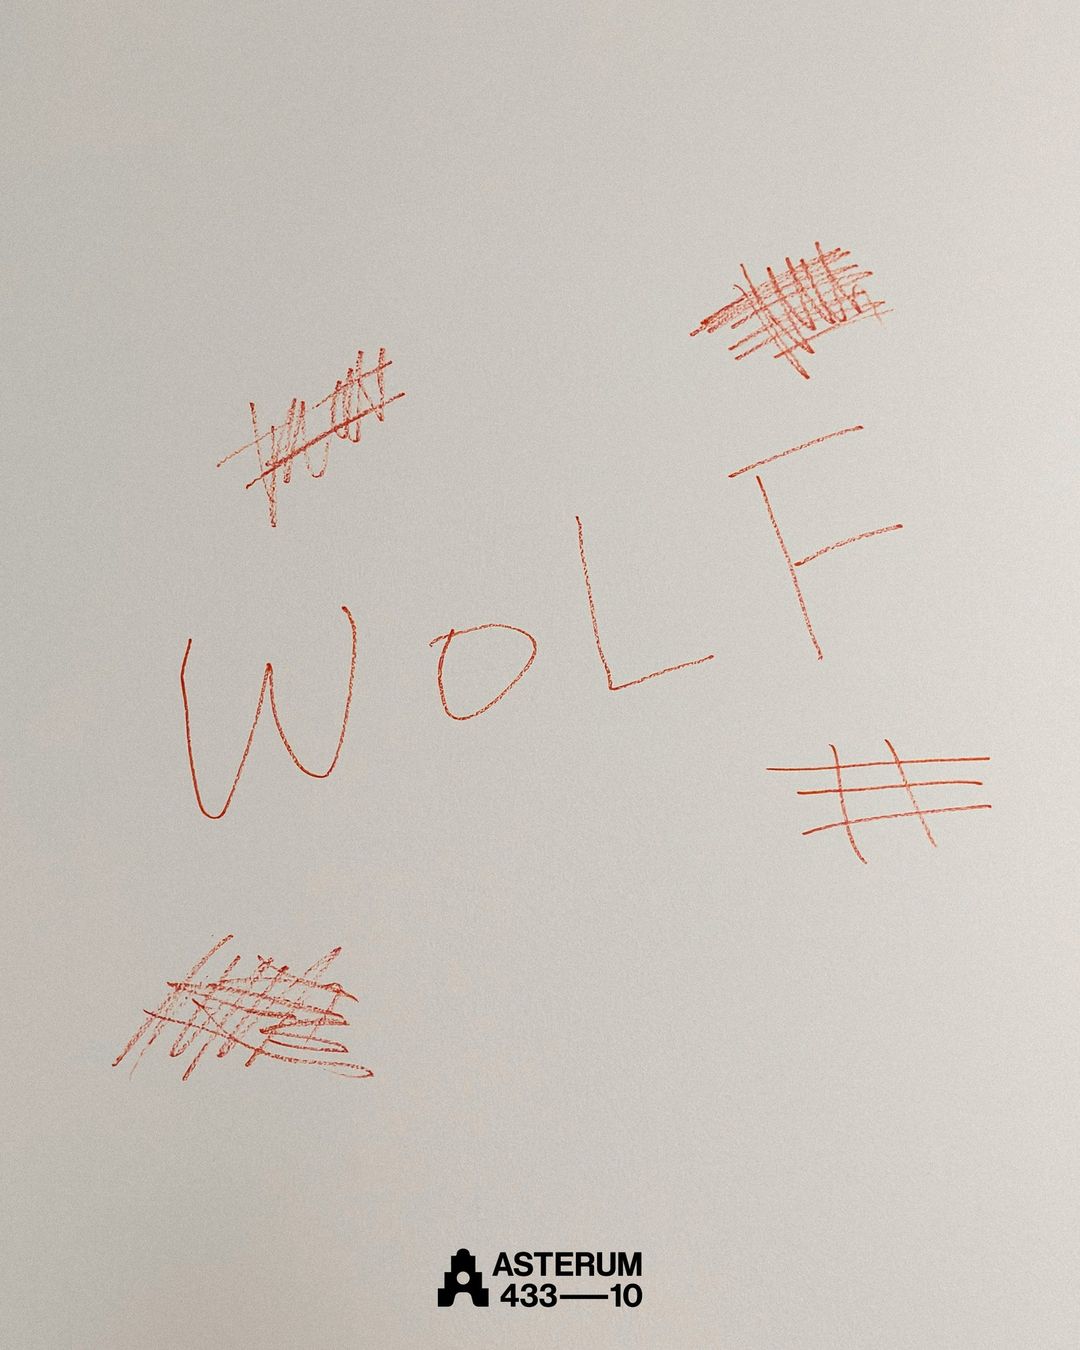 WOLF
ASTERUM
433—10